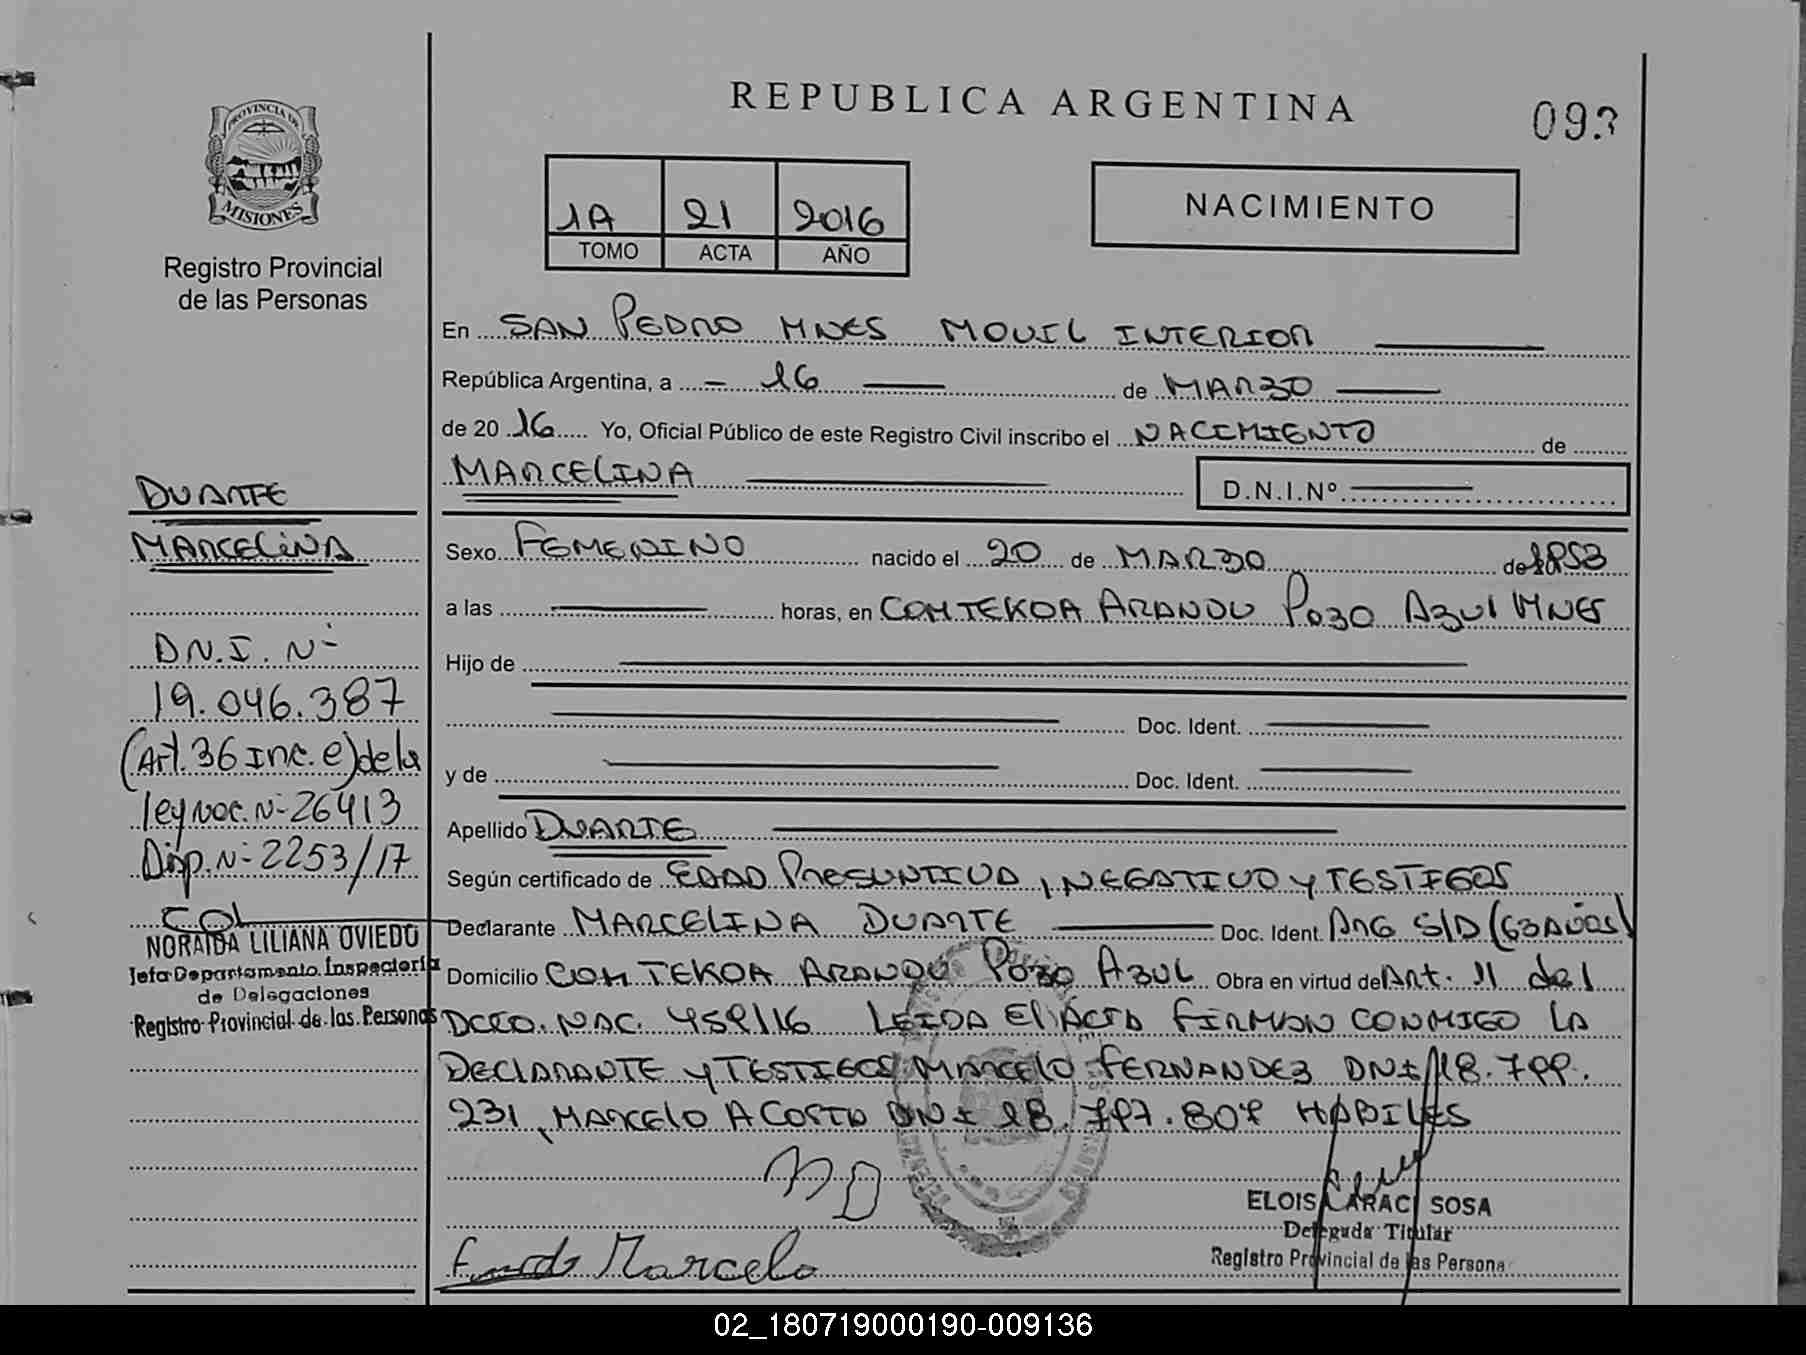 REPUBLICA ARGENTINA
093
PROVINCIA DE
MISIONES
Registro Provincial
de las Personas
1A 21 2016
TOMO ACTA AÑO
NACIMIENTO
En SAN PEDRO MNES MOVIL INTERIOR
República Argentina, a 16 de MARZO
de 20 16 Yo, Oficial Público de este Registro Civil inscribo el NACIMIENTO de
MARCELINA D.N.I.Nº
Sexo FEMENINO nacido el 20 de MARZO de 1953
a las horas, en COM TEKOA ARANDU POZO AZUL MNES
Hijo de
Doc. Ident.
y de Doc. Ident.
Apellido DUARTE
Según certificado de EDAD PRESUNTIVA, NEGATIVO y TESTIGOS
Declarante MARCELINA DUARTE Doc. Ident. ARG S/D (63 AÑOS)
Domicilio COM TEKOA ARANDU POZO AZUL Obra en virtud del Art. 11 del
DCTO. NAC. 459/16 LEIDA El ACTA FIRMAN CONMIGO LA
DECLARANTE y TESTIGOS MARCELO FERNANDEZ DNI 18.799.
231, MARCELO ACOSTA DNI 18.797.807 HABILES
MD
Marcelo
ELOISA CARAC SOSA
Delegada Titular
Registro Provincial de las Persona
DUARTE
MARCELINA
D.N.I. Nº
19.046.387
(Art. 36 Inc. e) de la
ley Nac. Nº 26413
Disp. Nº 2253/17
NORAIDA LILIANA OVIEDO
Jefa Departamento Inspectoría
de Delegaciones
Registro Provincial de las Personas
02_180719000190-009136